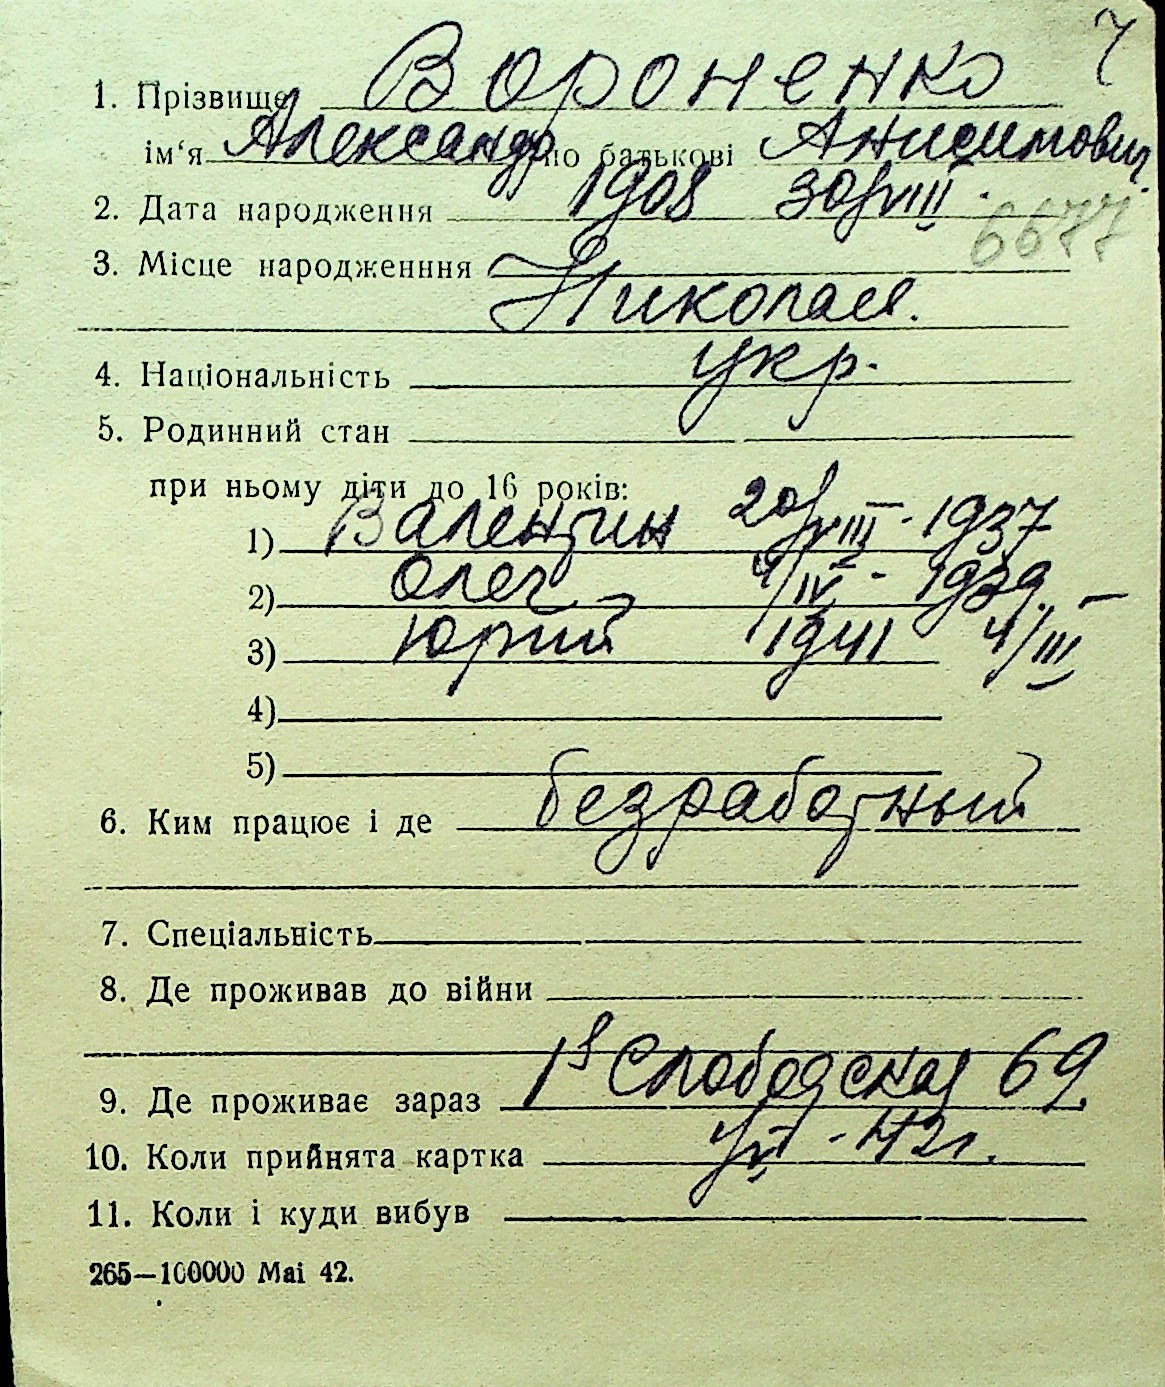 1. Прізвище Вороненко
ім‘я Александр по батькові Анисимович
2. Дата народження 1908 30/VIII.
6677
3. Місце народженння
Николаев.
4. Національність укр.
5. Родинний стан
при ньому діти до 16 років:
1) Валентин 20/VIII - 1937
2) Олег 4/IV - 1939.
3) Юрий 1941 4/III
4)
5)
6. Ким працює і де безработный
7. Спеціальність
8. Де проживав до війни
9. Де проживає зараз Слободская 69.
10. Коли прийнята картка - 42г.
11. Коли і куди вибув
265—100000 Mai 42.